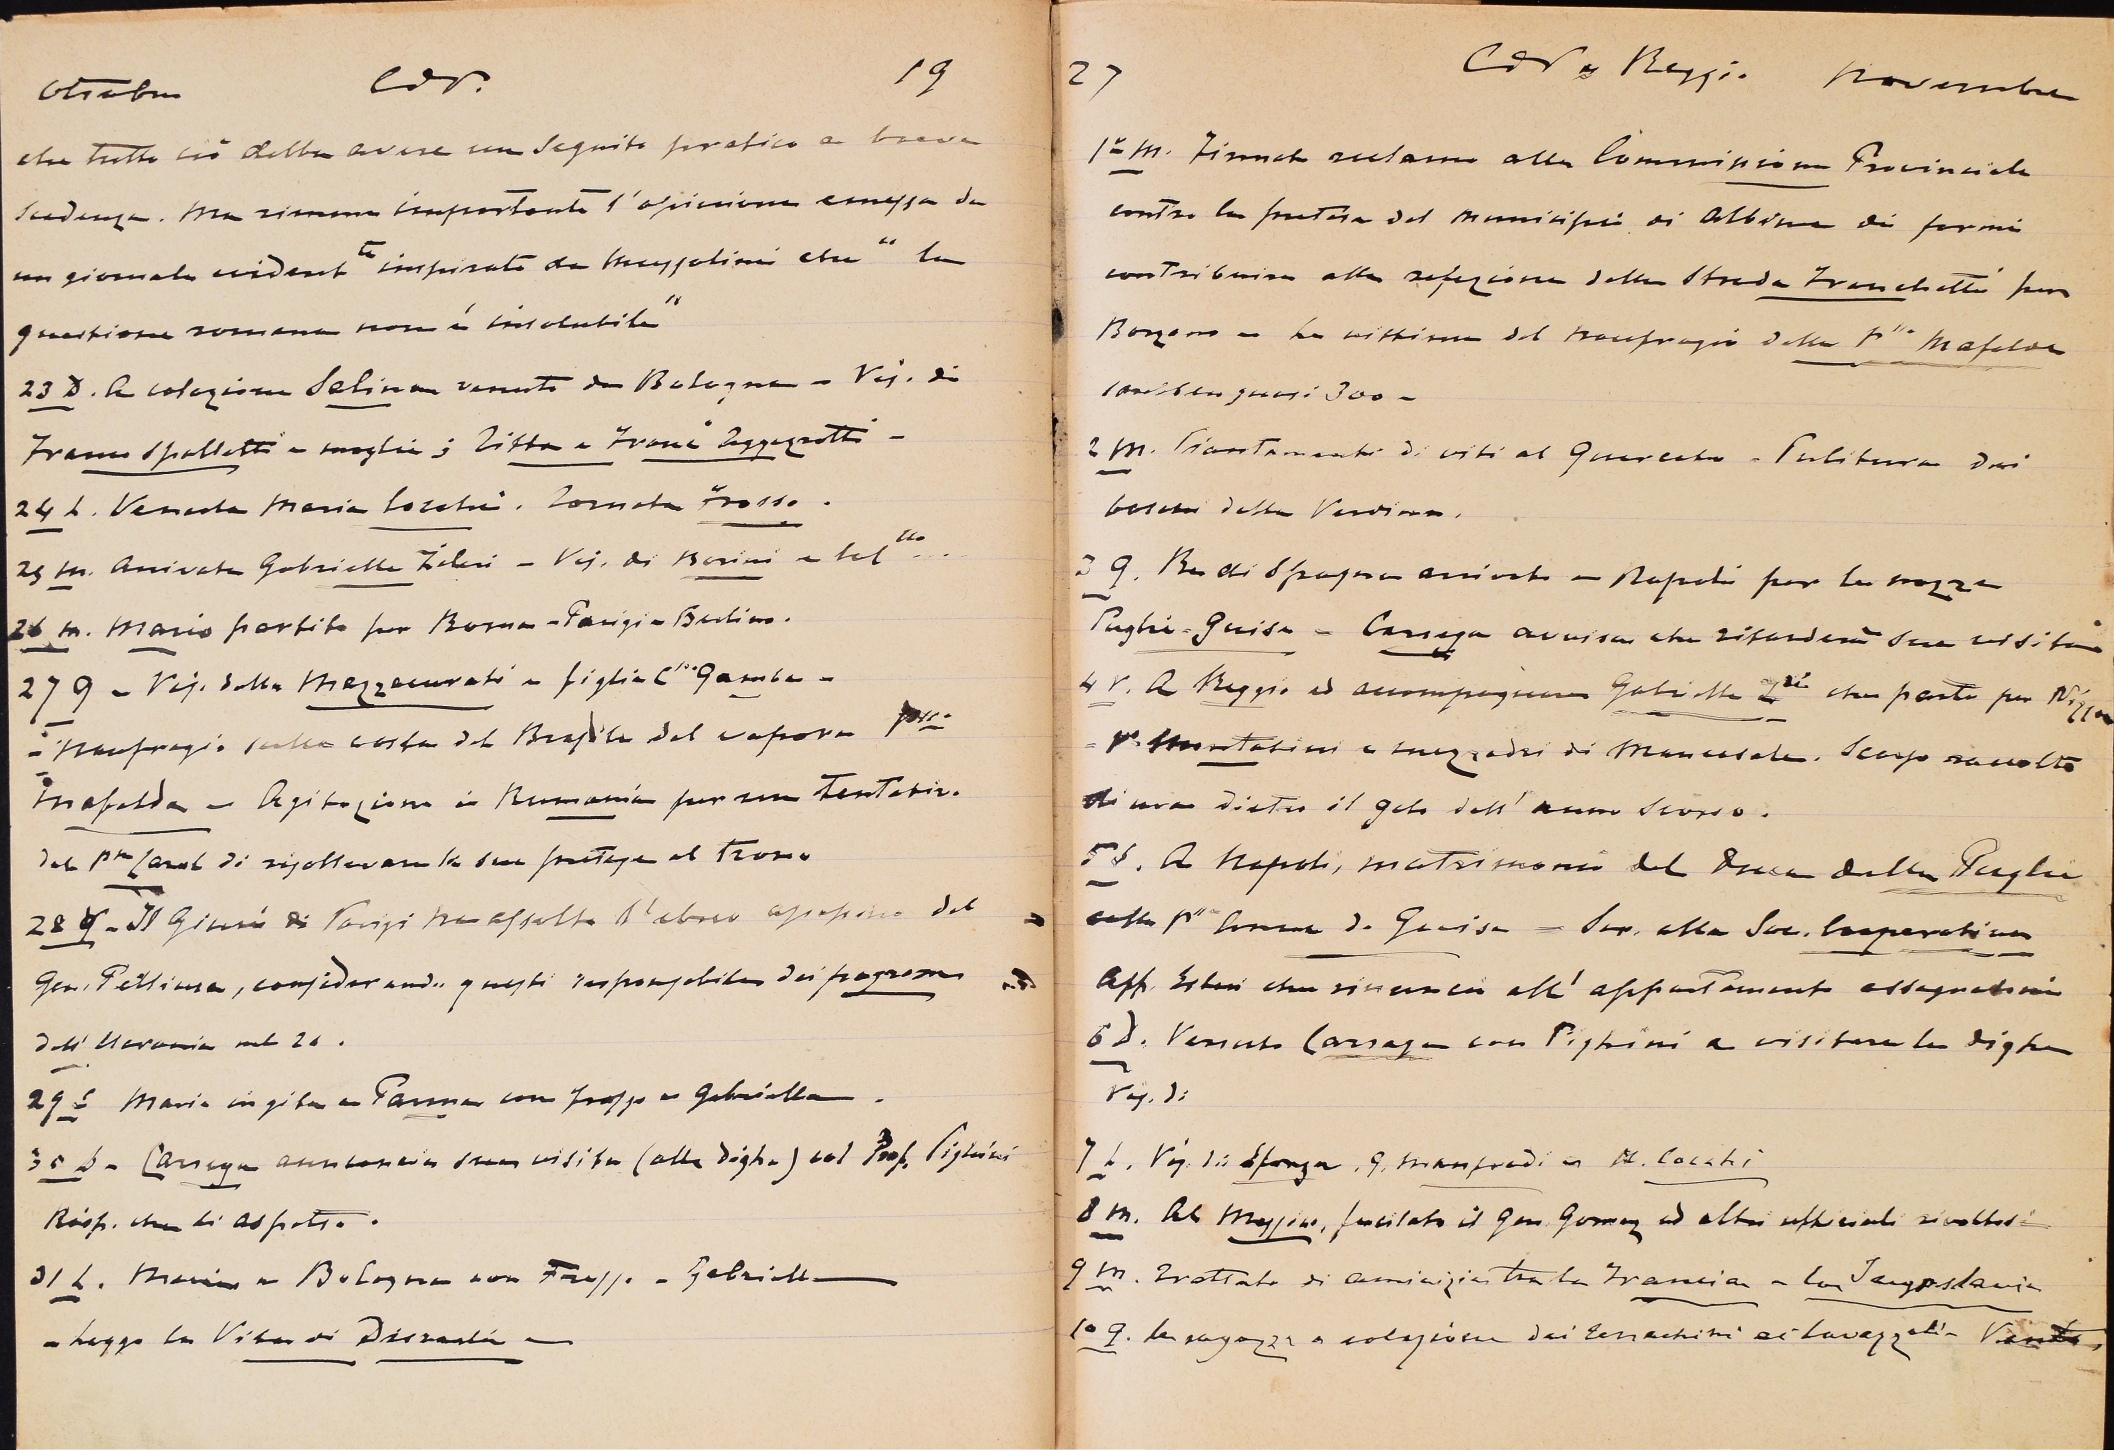 Ottobre CdV. 19
che tutto ciò debba avere un seguito pratico a breve
scadenza. Ma rimane importante l'opinione emessa da
un giornale evident.te inspirato da Mussolini che "la
questione romana non è insolubile"
23 D. A colazione Salina venuto da Bologna - Vis. di
Franco Spalletti e moglie; Titta e
24 L. Venuta Maria Cocchi. Tornata Frasso.
25 M. Arrivata Gabriella Zileri - Vis. di Borini e
26 M. Mario partito per Roma - Parigi - Berlino.
27 G - Vis. della Mazzacurati e figlia C.ssa Gamba -
- Naufragio sulla costa del Brasile del vapore P.ssa
Mafalda - Agitazione in Rumania per un tentativo
del P.pe Carol di risollevare le sue pretese al trono
28 V - Il Giurì di Parigi ha assolto l'ebreo del
Gen. Petliura, considerando questi responsabile dei pogroms
dell'Ucrania nel 20.
29 S Maria in gita a Parma con Frasso e Gabriella.
30 D - Carrega annuncia sua visita (alla diga) col Prof. Pighini
Risp. che li aspetto.
31 L. Maria a Bologna con Frasso - Gabriella
- Leggo la Vita di Disraeli -
27 CdV e Reggio Novembre
1° M. Firmato reclamo alla Commissione Provinciale
contro la pretesa del Municipio di Albinea di farmi
contribuire alla refezione della Strada Franchetti per
Borzano - Le vittime del naufragio della P.ssa Mafalda
sarebbero quasi 300 -
2 M. Piantamenti di viti al Querceto - Pulitura dei
boschi della Verdina.
3 G. Re di Spagna arrivato a Napoli per le nozze
Puglie - Guisa - Carrega avvisa che ritarderà sua visita
4 V. A Reggio ad accompagnare Gabriella che parte per Nizza
- e mezzadri di Mancasale. Scarso raccolto
di uva dietro il gelo dell'anno scorso.
5 S. A Napoli, matrimonio del Duca delle Puglie
colla P.ssa Anna di Guisa - Scr. alla Soc. Cooperativa
Aff. Esteri che rinuncio all'appartamento assegnatomi
6 D. Venuto Carrega con Pighini a visitare la diga
Vis. di
7 L. Vis. di Sforza, G. Manfredi e M. Cocchi
8 M. Al Messico, fucilato il Gen. Gomez ed altri ufficiali rivoltosi
9 M. Trattato di amicizia tra la Francia e la Jugoslavia
10 G. Le ragazze a colazione dai Terrachini ai Cavazzoli -